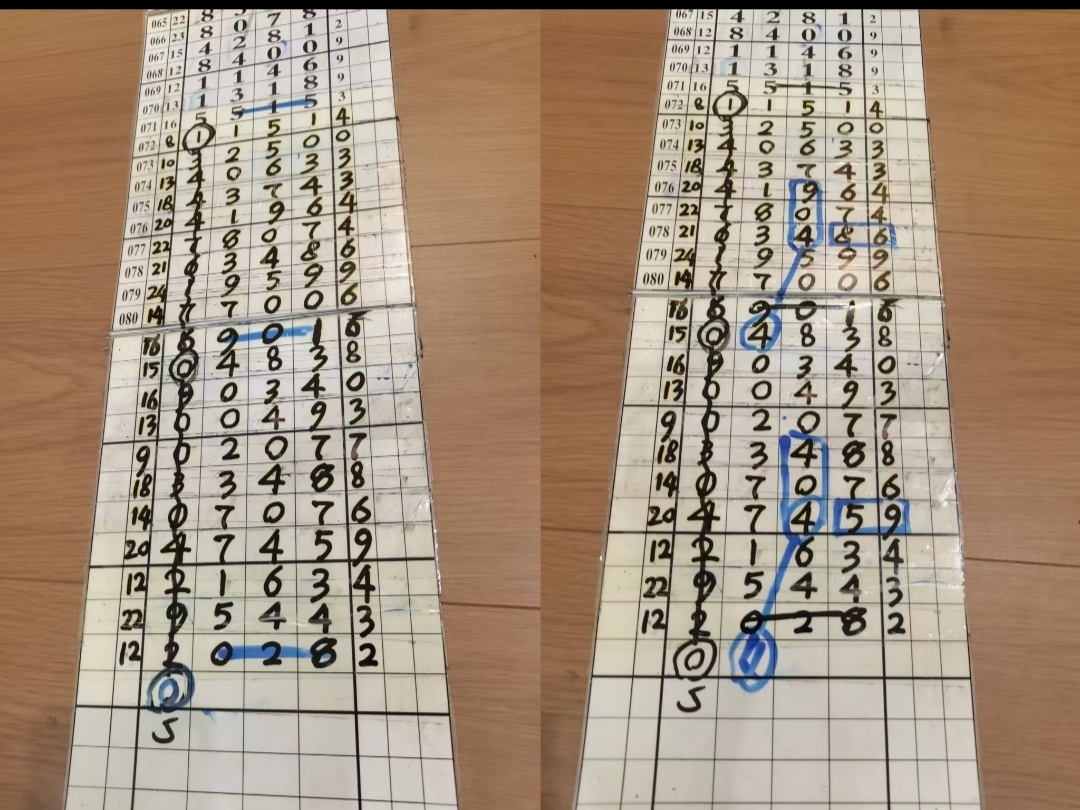 065 22 8 7 8
066 23 8 0 8 1 2
067 15 4 2 0 0 9
068 12 8 4 4 6 9
069 12 1 1 1 8 9
070 13 1 3 1 5 3
071 16 5 5 5 1 4
072 8 1 1 5 0 0
073 10 3 2 6 3 3
074 13 4 0 7 4 3
075 18 4 3 9 6 4
076 20 4 1 0 7 4
077 22 7 8 4 8 6
078 21 6 3 5 9 9
079 24 1 9 0 0 6
080 14 7 7
16 6 9 0 1 6
15 0 4 8 3 8
16 9 0 3 4 0
13 0 0 4 9 3
9 0 2 0 7 7
18 3 3 4 8 8
14 0 7 0 7 6
20 4 7 4 5 9
12 2 1 6 3 4
22 9 5 4 4 3
12 2 0 2 8 2
0
5
067 15 4 2 8 1 2
068 12 8 4 0 0 9
069 12 1 1 4 6 9
070 13 1 3 1 8 9
071 16 5 5 1 5 3
072 8 1 1 5 1 4
073 10 3 2 5 0 0
074 13 4 0 6 3 3
075 18 4 3 7 4 3
076 20 4 1 9 6 4
077 22 7 8 0 7 4
078 21 6 3 4 8 6
079 24 1 9 5 9 9
080 14 7 7 0 0 6
16 6 9 0 1 6
15 0 4 8 3 8
16 9 0 3 4 0
13 0 0 4 9 3
9 0 2 0 7 7
18 3 3 4 8 8
14 0 7 0 7 6
20 4 7 4 5 9
12 2 1 6 3 4
22 9 5 4 4 3
12 2 0 2 8 2
0
5